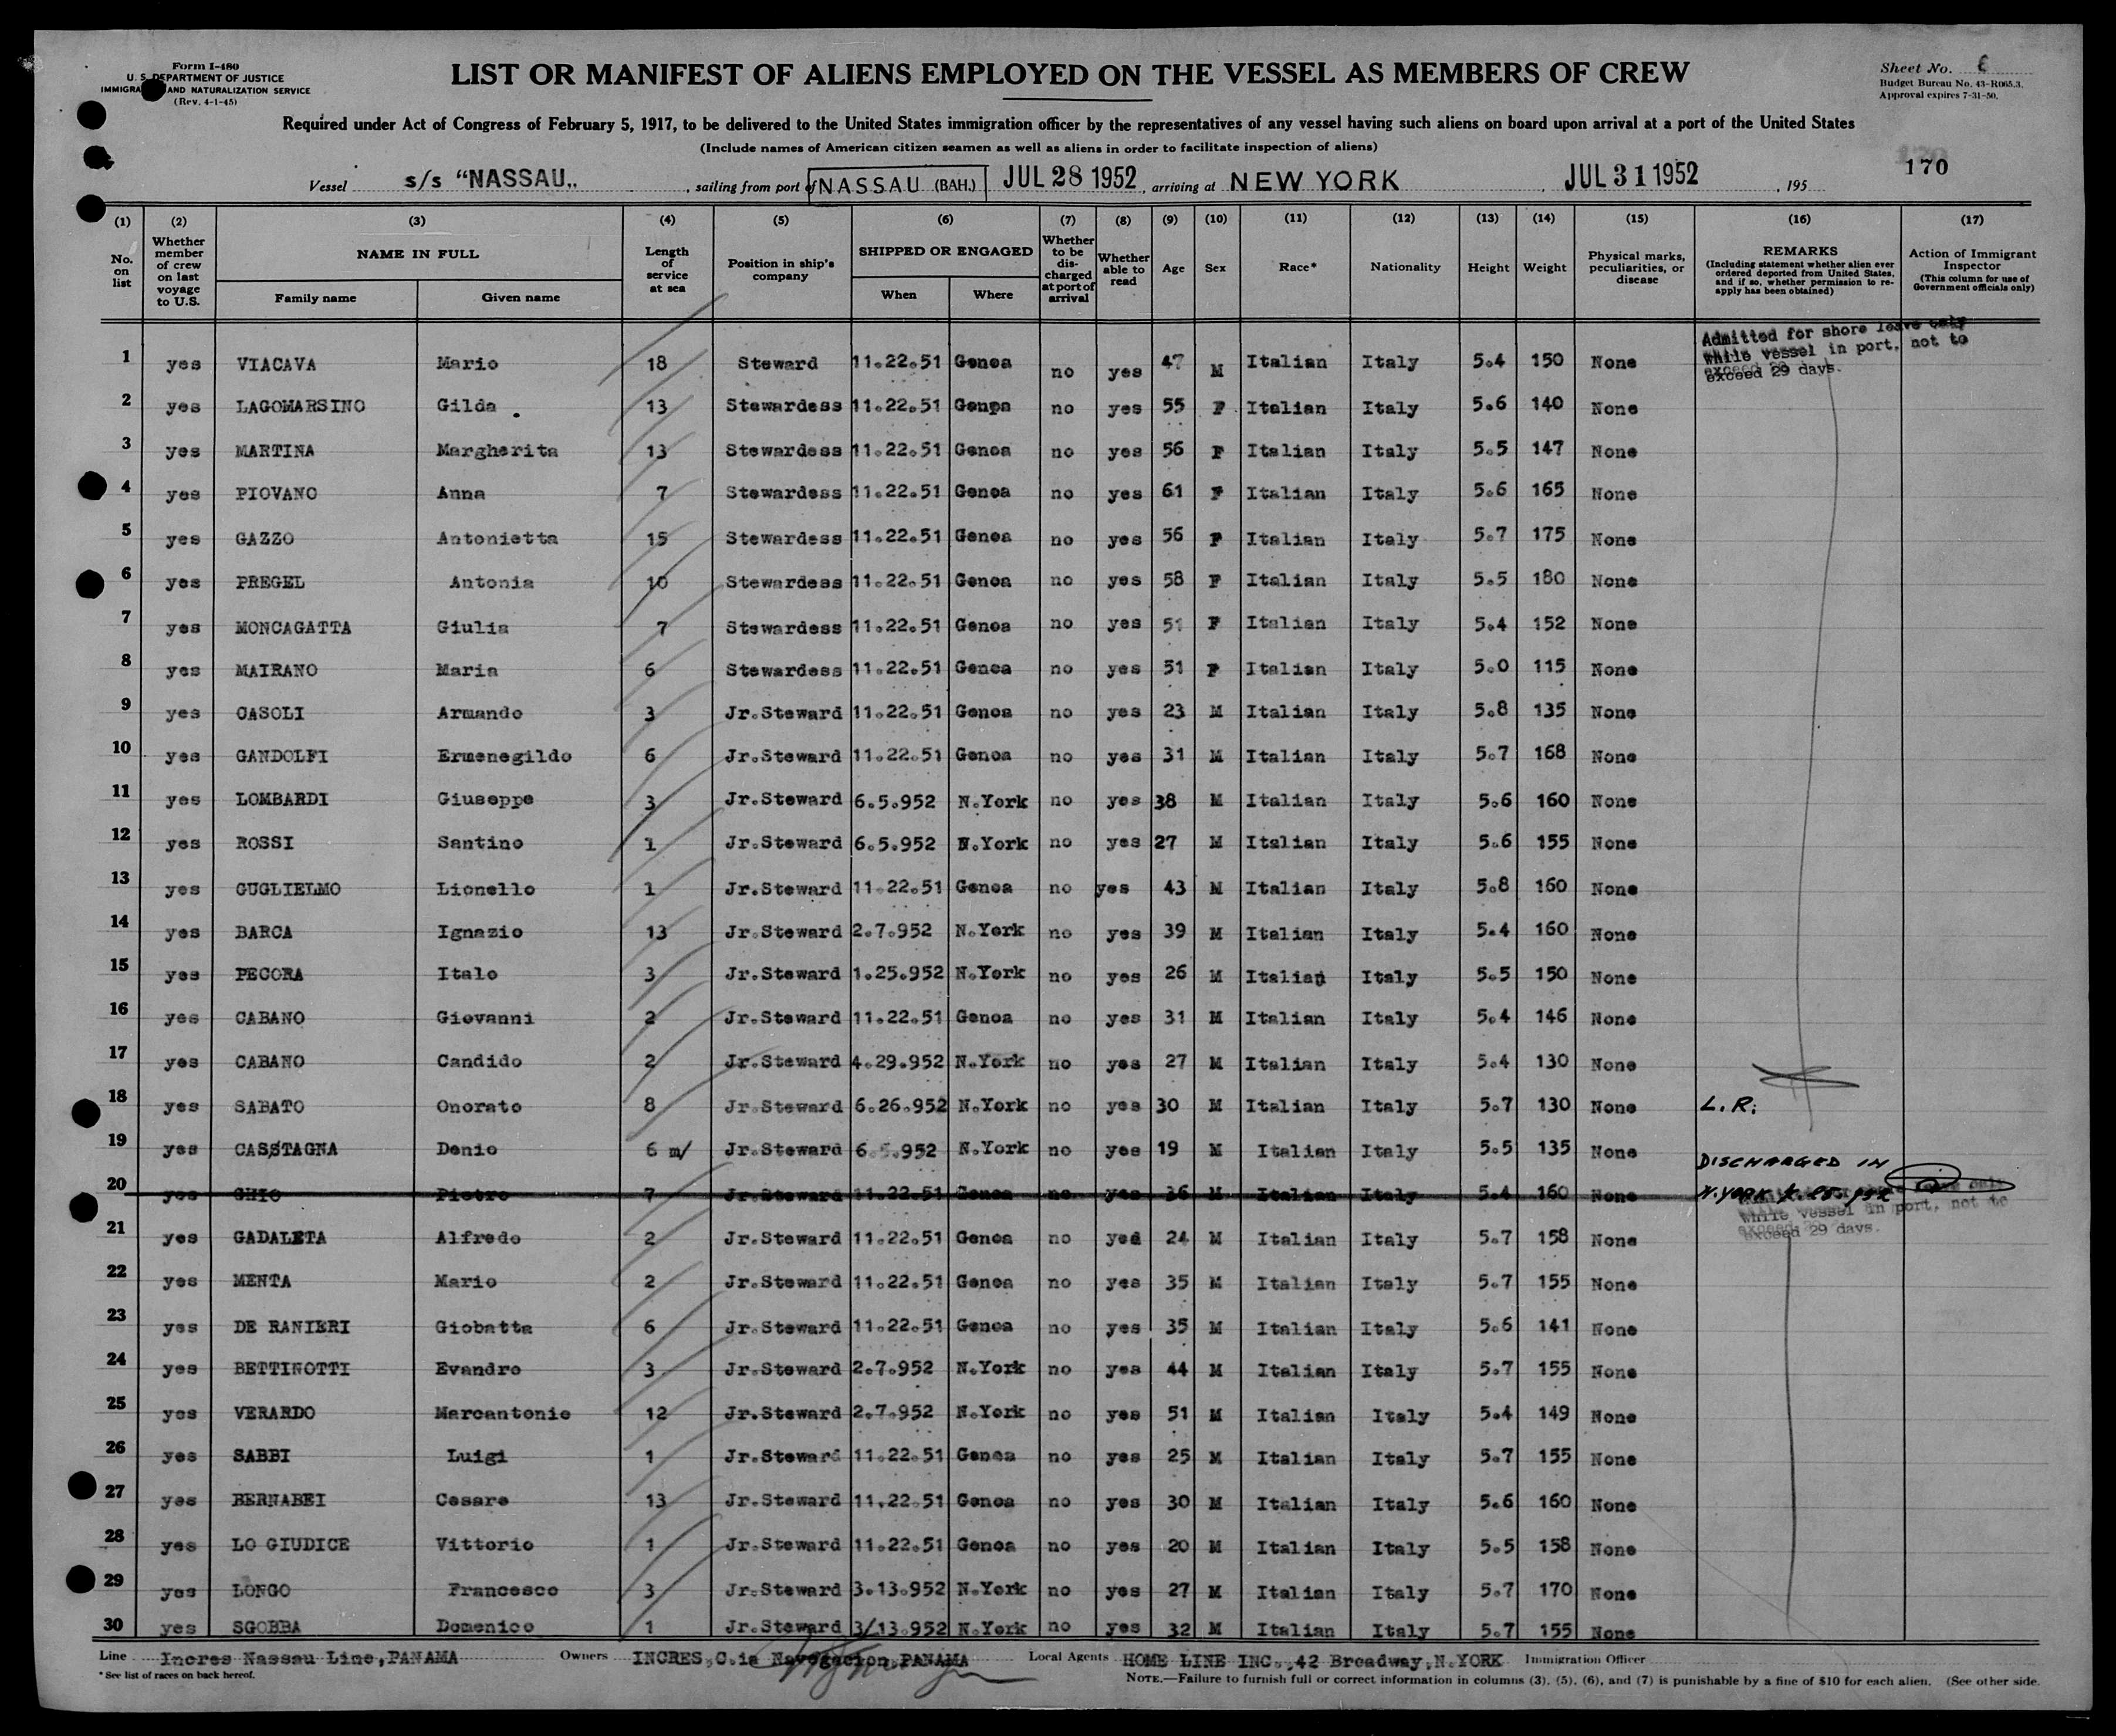 Form I-480
U. S. DEPARTMENT OF JUSTICE
IMMIGRA AND NATURALIZATION SERVICE
(Rev. 4-1-45)
LIST OR MANIFEST OF ALIENS EMPLOYED ON THE VESSEL AS MEMBERS OF CREW
Sheet No.
Budget Bureau No. 43-R065.3.
Approval expires 7-31-50.
Required under Act of Congress of February 5, 1917, to be delivered to the United States immigration officer by the representatives of any vessel having such aliens on board upon arrival at a port of the United States
(Include names of American citizen seamen as well as aliens in order to facilitate inspection of aliens)
170
Vessel s/s "NASSAU„ , sailing from port of NASSAU (BAH.) JUL 28 1952 , arriving at NEW YORK , JUL 31 1952 , 195
(1) (2) (3) (4) (5) (6) (7) (8) (9) (10) (11) (12) (13) (14) (15) (16) (17)
No. on list
Whether member of crew on last voyage to U.S.
NAME IN FULL
Family name Given name
Length of service at sea
Position in ship's company
SHIPPED OR ENGAGED
When Where
Whether to be discharged at port of arrival
Whether able to read
Age Sex Race* Nationality Height Weight
Physical marks, peculiarities, or disease
REMARKS
(Including statement whether alien ever ordered deported from United States, and if so, whether permission to re-apply has been obtained)
Action of Immigrant Inspector
(This column for use of Government officials only)
Admitted for shore leave only
while vessel in port, not to
exceed 29 days.
1 yes VIACAVA Mario 18 Steward 11.22.51 Genoa no yes 47 M Italian Italy 5.4 150 None
2 yes LAGOMARSINO Gilda 13 Stewardess 11.22.51 Genoa no yes 55 F Italian Italy 5.6 140 None
3 yes MARTINA Margherita 13 Stewardess 11.22.51 Genoa no yes 56 F Italian Italy 5.5 147 None
4 yes PIOVANO Anna 7 Stewardess 11.22.51 Genoa no yes 61 F Italian Italy 5.6 165 None
5 yes GAZZO Antonietta 15 Stewardess 11.22.51 Genoa no yes 56 F Italian Italy 5.7 175 None
6 yes PREGEL Antonia 10 Stewardess 11.22.51 Genoa no yes 58 F Italian Italy 5.5 180 None
7 yes MONCAGATTA Giulia 7 Stewardess 11.22.51 Genoa no yes 51 F Italian Italy 5.4 152 None
8 yes MAIRANO Maria 6 Stewardess 11.22.51 Genoa no yes 51 F Italian Italy 5.0 115 None
9 yes CASOLI Armando 3 Jr.Steward 11.22.51 Genoa no yes 23 M Italian Italy 5.8 135 None
10 yes GANDOLFI Ermenegildo 6 Jr.Steward 11.22.51 Genoa no yes 31 M Italian Italy 5.7 168 None
11 yes LOMBARDI Giuseppe 3 Jr.Steward 6.5.952 N.York no yes 38 M Italian Italy 5.6 160 None
12 yes ROSSI Santino 1 Jr.Steward 6.5.952 N.York no yes 27 M Italian Italy 5.6 155 None
13 yes GUGLIELMO Lionello 1 Jr.Steward 11.22.51 Genoa no yes 43 M Italian Italy 5.8 160 None
14 yes BARCA Ignazio 13 Jr.Steward 2.7.952 N.York no yes 39 M Italian Italy 5.4 160 None
15 yes PECORA Italo 3 Jr.Steward 1.25.952 N.York no yes 26 M Italian Italy 5.5 150 None
16 yes CABANO Giovanni 2 Jr.Steward 11.22.51 Genoa no yes 31 M Italian Italy 5.4 146 None
17 yes CABANO Candido 2 Jr.Steward 4.29.952 N.York no yes 27 M Italian Italy 5.4 130 None
18 yes SABATO Onorato 8 Jr.Steward 6.26.952 N.York no yes 30 M Italian Italy 5.7 130 None L.R.
19 yes CASSTAGNA Denio 6 m/ Jr.Steward 6.5.952 N.York no yes 19 M Italian Italy 5.5 135 None
DISCHARGED IN
20 yes GHIO Pietro 7 Jr.Steward 11.22.51 Genoa no yes 36 M Italian Italy 5.4 160 None N.YORK
while vessel in port, not to
exceed 29 days.
21 yes GADALETA Alfredo 2 Jr.Steward 11.22.51 Genoa no yed 24 M Italian Italy 5.7 158 None
22 yes MENTA Mario 2 Jr.Steward 11.22.51 Genoa no yes 35 M Italian Italy 5.7 155 None
23 yes DE RANIERI Giobatta 6 Jr.Steward 11.22.51 Genoa no yes 35 M Italian Italy 5.6 141 None
24 yes BETTINOTTI Evandro 3 Jr.Steward 2.7.952 N.York no yes 44 M Italian Italy 5.7 155 None
25 yes VERARDO Marcantonio 12 Jr.Steward 2.7.952 N.York no yes 51 M Italian Italy 5.4 149 None
26 yes SABBI Luigi 1 Jr.Steward 11.22.51 Genoa no yes 25 M Italian Italy 5.7 155 None
27 yes BERNABEI Cesare 13 Jr.Steward 11.22.51 Genoa no yes 30 M Italian Italy 5.6 160 None
28 yes LO GIUDICE Vittorio 1 Jr.Steward 11.22.51 Genoa no yes 20 M Italian Italy 5.5 158 None
29 yes LONGO Francesco 3 Jr.Steward 3.13.952 N.York no yes 27 M Italian Italy 5.7 170 None
30 yes SGOBBA Domenico 1 Jr.Steward 3/13.952 N.York no yes 32 M Italian Italy 5.7 155 None
Line Incres Nassau Line,PANAMA Owners INCRES,C.ia Navegacion PANAMA Local Agents HOME LINE INC.,42 Broadway,N.YORK Immigration Officer
*See list of races on back hereof.
NOTE.—Failure to furnish full or correct information in columns (3), (5), (6), and (7) is punishable by a fine of $10 for each alien. (See other side.